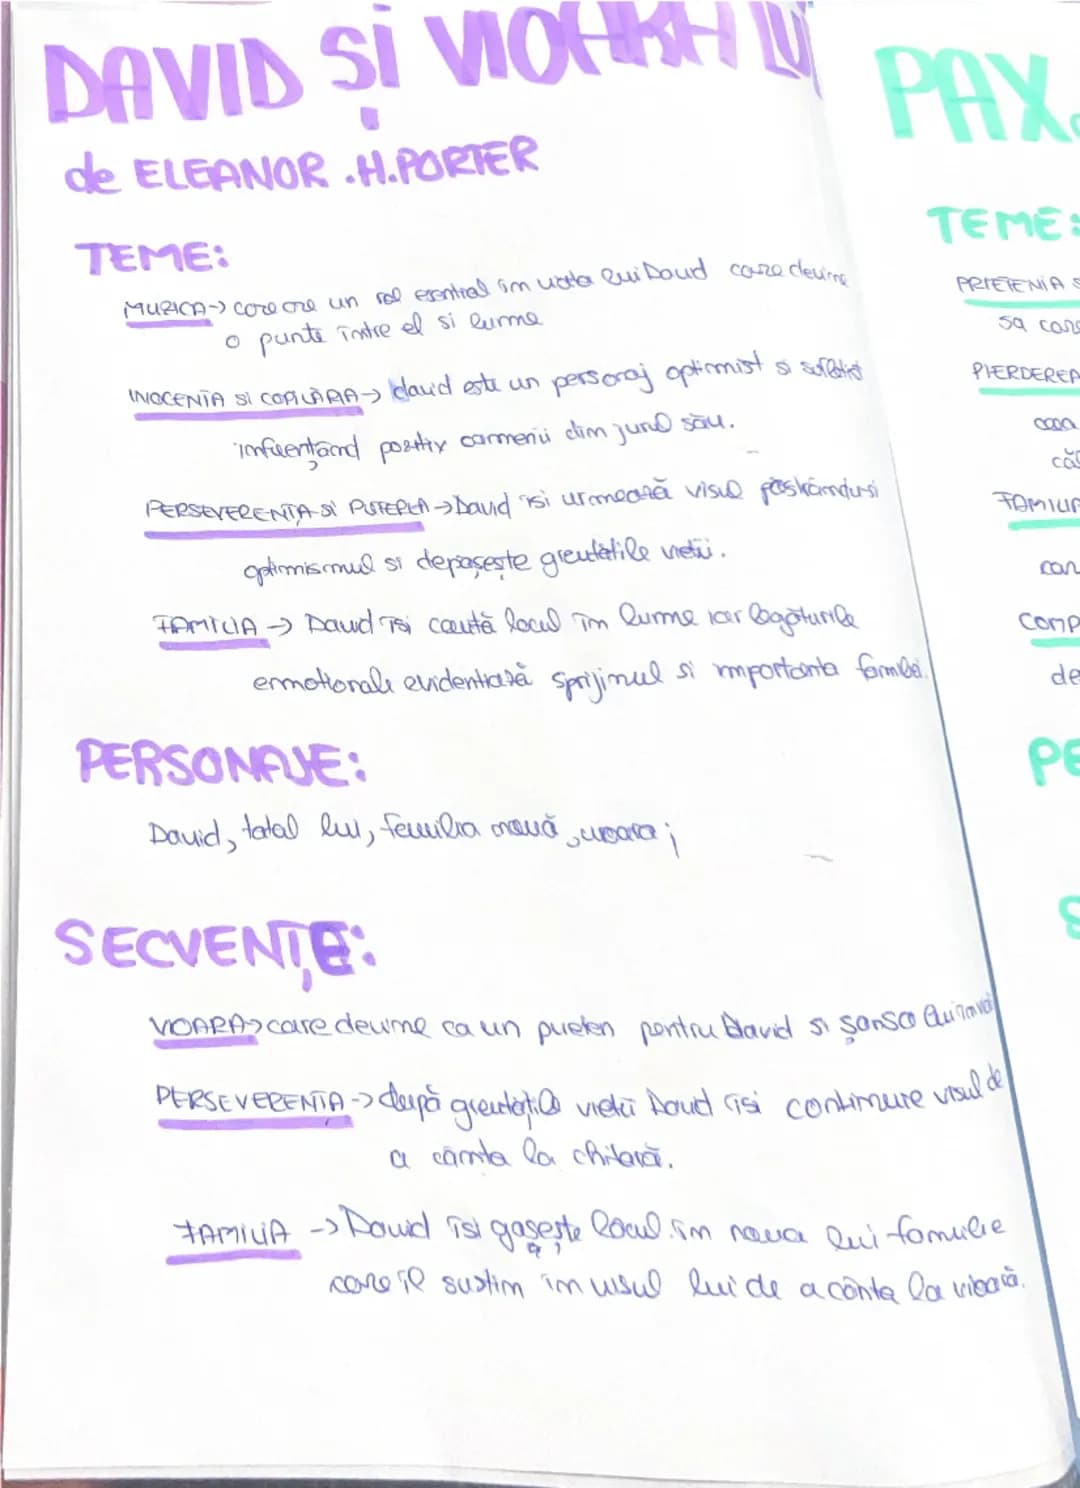 DAVID ȘI VIOARA LUI
de ELEANOR .H.PORTER
TEME:
MUZICA-> care are un rol esential in viata lui David care devine
o punte între el si lume
INOCENTA SI COPILĂRIA-> david este un personaj optimist si sufletist
influențând pozitiv oamenii din jurul său.
PERSEVERENTA SI PUTEREA->David isi urmează visul păstrându-si
optimismul si depașește greutătile vietii.
FAMILIA -> David isi caută locul în lume iar legăturile
emotionale evidentiază sprijinul si importanta familiei.
PERSONAJE:
David, tatal lui, familia nouă, vioara;
SECVENȚE:
VIOARA->care devine ca un prieten pentru David si șansa lui
PERSEVERENTA -> după greutătile vietii David isi continuare visul de
a cânta la chitară.
FAMILIA -> David isi gasește locul in noua lui familie
care il sustin in visul lui de a cânta la vioară.
PAX.
TEME:
PRIETENIA
sa care
PIERDEREA
FAMILIA
car
COMP
de
PE
S